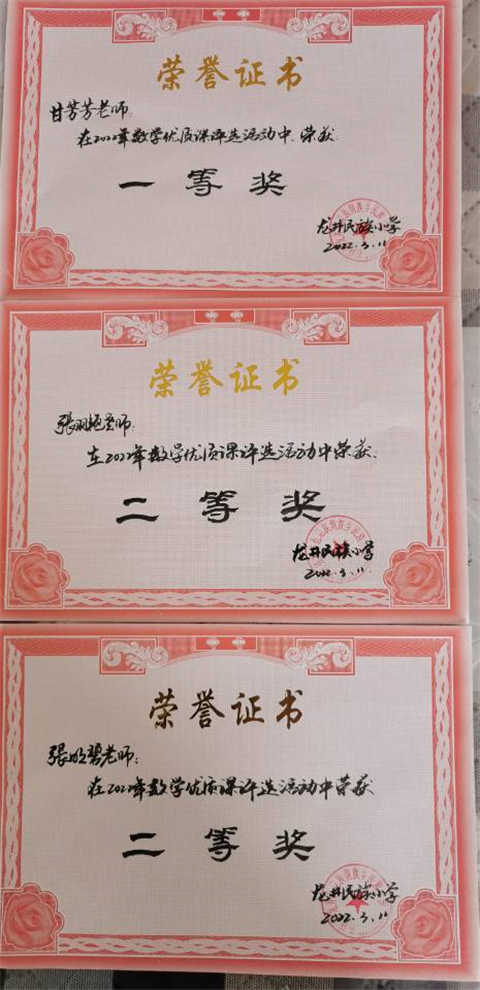 荣誉证书
甘芳芳老师:
在2022年数学优质课评选活动中,荣获:
一等奖
龙井民族小学
2022.3.11
荣誉证书
張羽艳老师:
在2022年数学优质课评选活动中荣获:
二等奖
龙井民族小学
2022.3.11
荣誉证书
張老师:
在2022年数学优质课评选活动中荣获:
二等奖
龙井民族小学
2022.3.11